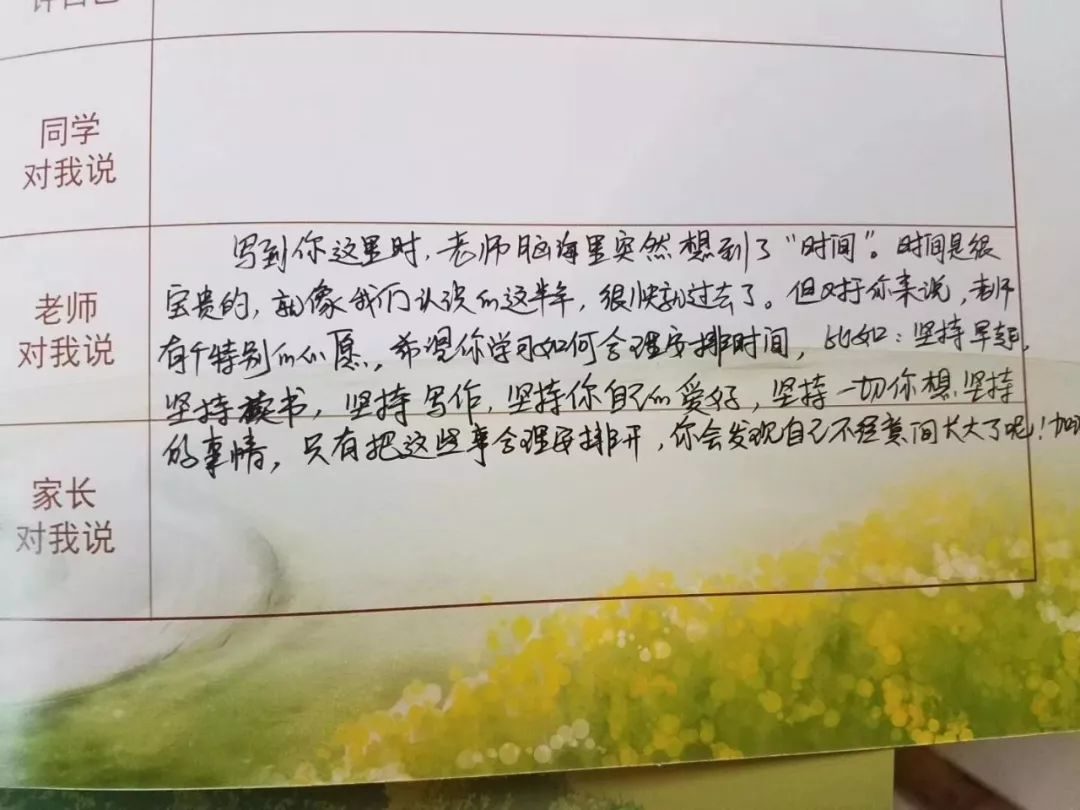 评自己
同学
对我说
老师
对我说
写到你这里时,老师脑海里突然想到了“时间”。时间是很
宝贵的,就像我们认识的这半年,很快就过去了。但对于你来说,老师
有个特别的心愿,希望你学习如何合理安排时间,比如:坚持早起,
坚持读书,坚持写作,坚持你自己的爱好,坚持一切你想坚持
的事情,只有把这些事合理安排开,你会发现自己不经意间长大了呢!加油
家长
对我说